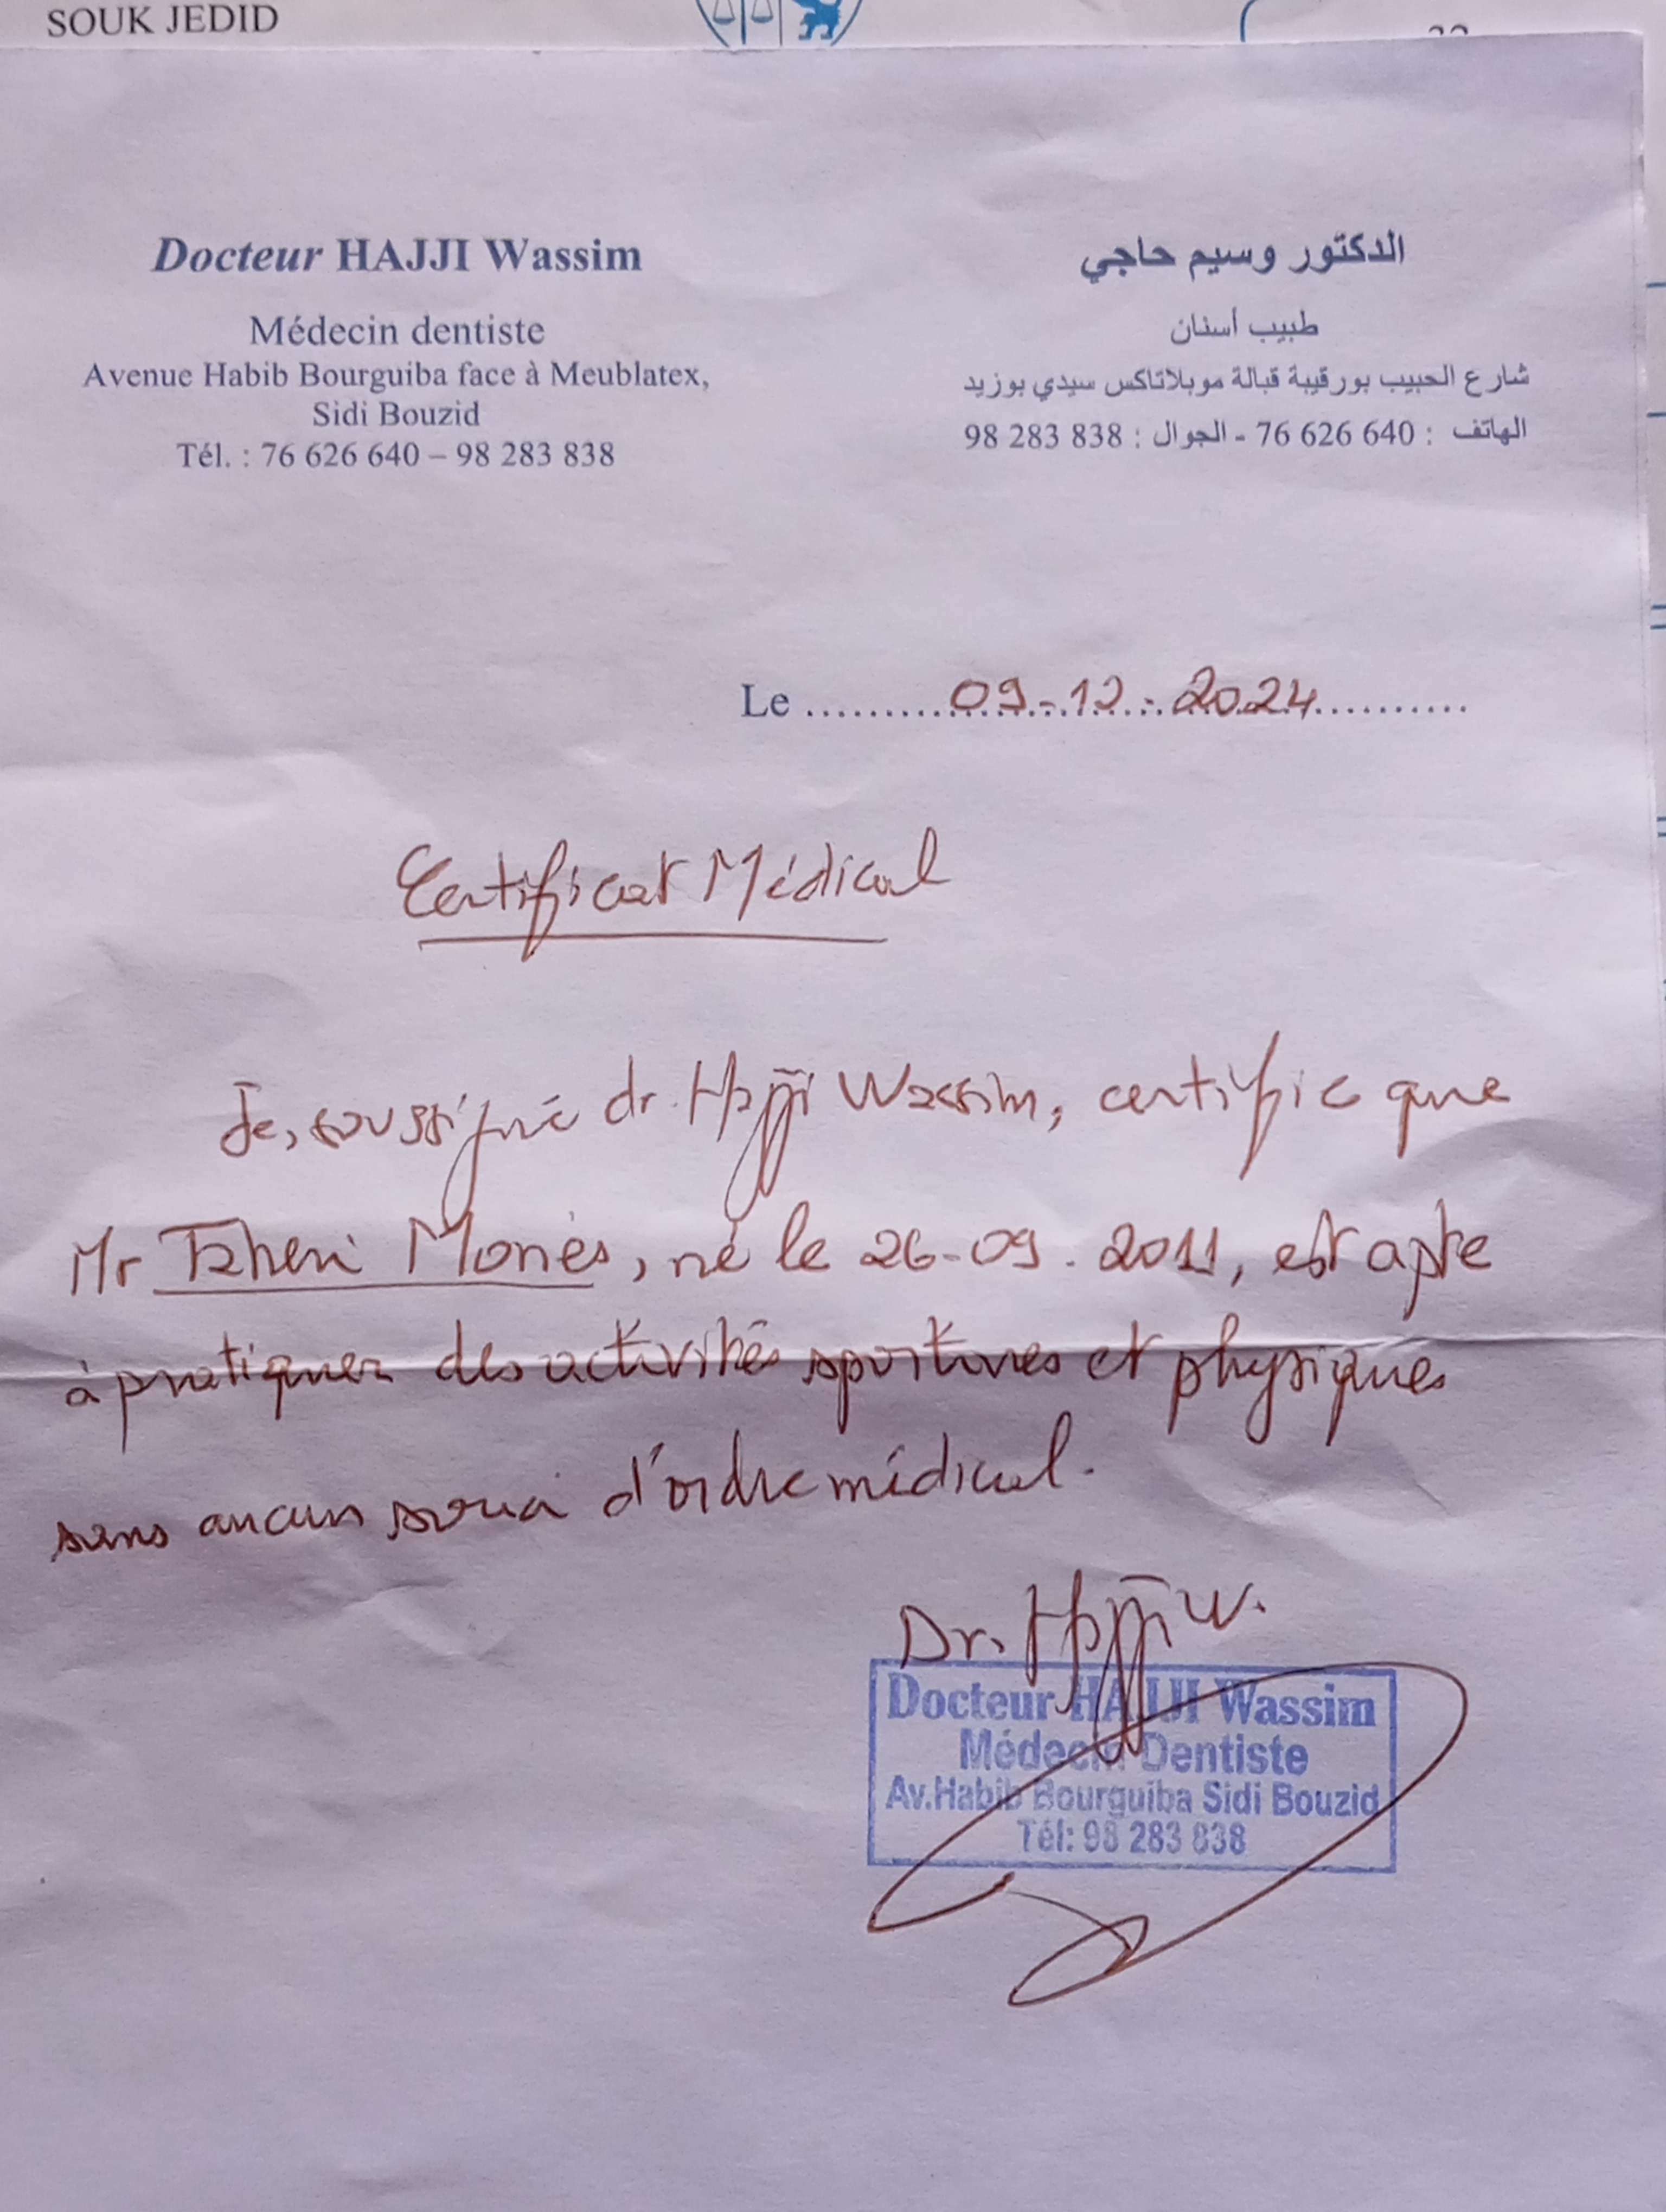 SOUK JEDID
Docteur HAJJI Wassim
Médecin dentiste
Avenue Habib Bourguiba face à Meublatex,
Sidi Bouzid
Tél. : 76 626 640 – 98 283 838
الدكتور وسيم حاجي
طبيب أسنان
شارع الحبيب بورقيبة قبالة موبلاتاكس سيدي بوزيد
الهاتف : 76 626 640 - الجوال : 98 283 838
Le 09-12-2024
Certificat Médical
Je, soussigné dr. Hajji Wassim, certifie que
Mr Taheri Mones, né le 26-09-2011, est apte
à pratiquer des activités sportives et physiques
sans aucun souci d'ordre médical.
Dr. Hajji W.
Docteur HAJJI Wassim
Médecin Dentiste
Av.Habib Bourguiba Sidi Bouzid
Tél: 98 283 838